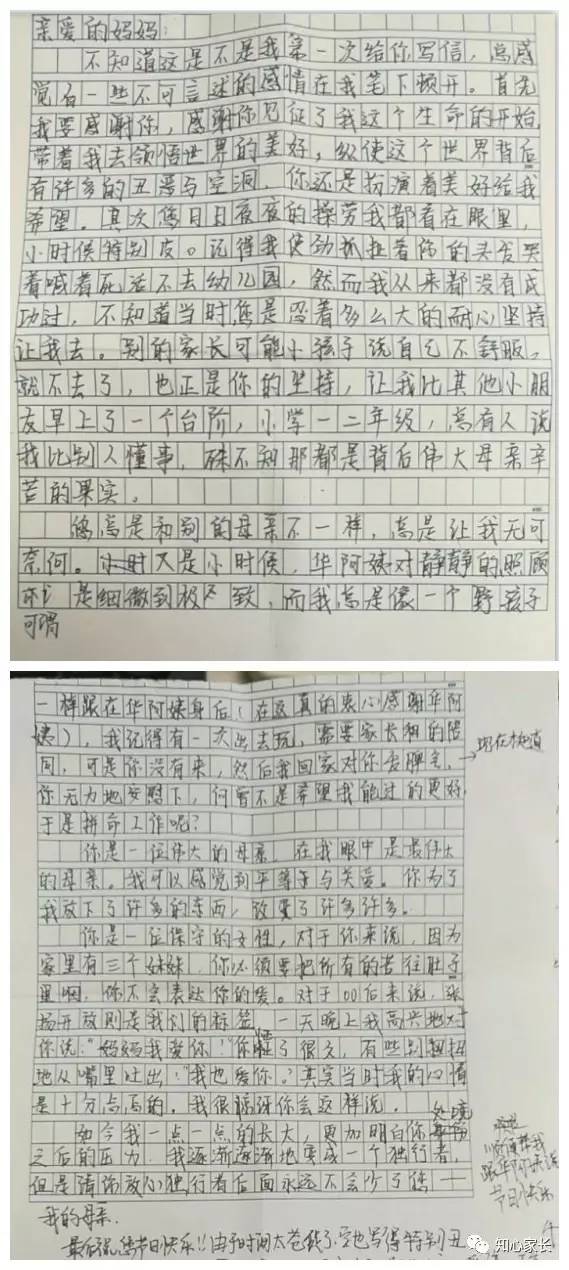 亲爱的妈妈:
不知道这是不是我第一次给你写信,总感
觉有一些不可言述的感情在我笔下顿开。首先
我要感谢你,感谢你见证了我这个生命的开始,
带着我去领悟世界的美好,纵使这个世界背后
有许多的丑恶与空洞,你还是扮演着美好给我
希望。其次您日日夜夜的操劳我都看在眼里,
小时候特别皮。记得我使劲抓扯着你的头发哭
着喊着死活不去幼儿园,然而我从来都没有成
功过,不知道当时您是忍着多么大的耐心坚持
让我去。别的家长可能小孩子说自己不舒服,
就不去了,也正是你的坚持,让我比其他小朋
友早上了一个台阶,小学一二年级,总有人说
我比别人懂事,殊不知那都是背后伟大母亲辛
苦的果实。
您总是和别的母亲不一样,总是让我无可
奈何。小时又是小时候,华阿姨对静静的照顾
是细微到极致,而我总是像一个野孩子
可谓
一样跟在华阿姨身后(在这真的衷心感谢华阿
姨),我记得有一次出去玩,需要家长的陪
同,可是你没有来,然后我回家对你发脾气,
现在才知道
你无力地安慰下,何曾不是希望我能过的更好,
于是拼命工作呢?
你是一位伟大的母亲,在我眼中是最伟大
的母亲。我可以感觉到平等于与关爱。你为了
我放下了许多的东西,改变了许多许多。
你是一位保守的女性,对于你来说,因为
家里有三个妹妹,你必须要把所有的苦往肚子
里咽,你不会表达你的爱。对于00后来说,张
扬开放则是我们的标签,一天晚上我高兴地对
你说:“妈妈我爱你!”你愣了很久,有些别扭
地从嘴里吐出:“我也爱你。”其实当时我的心情
是十分高的。我很惊讶你会这样说。
如今我一点一点的长大,更加明白你处境
之后的压力,我逐渐逐渐地变成一个独行者,
但是请你放心独行者后面永远不会少了您——
我的母亲.
顺便帮我
跟华阿姨说
节日快乐
最后祝您节日快乐!!由于时间太仓促了,字也写得特别丑
知心家长